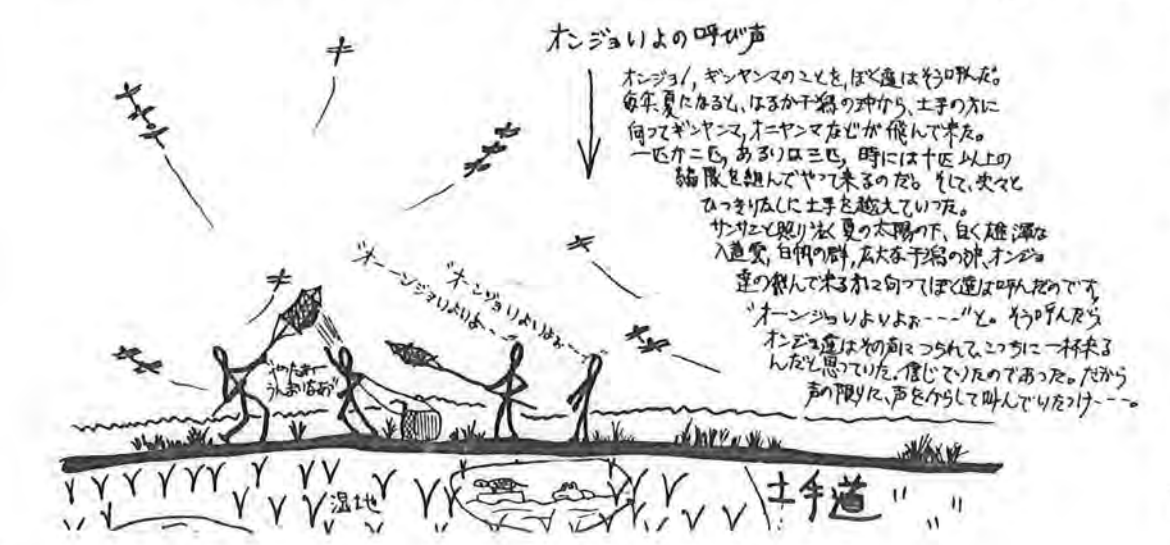 オンジョいよの呼び声
オンジョ、ギンヤンマのことを、ぼく達はそう呼んだ。
毎年夏になると、はるか干潟の沖から、土手の方に
向ってギンヤンマ、オニヤンマなどが飛んで来た。
一匹か二匹、あるいは三匹、時には十匹以上の
編隊を組んでやって来るのだ。そして、次々と
ひっきりなしに土手を越えていった。
サンサンと照り注ぐ夏の太陽の下、白く雄渾な
入道雲、白帆の群、広大な干潟の沖、オンジョ
達の飛んで来る方に向ってぼく達は呼んだのです
"オーンジョいよいよぉ----"と。そう呼んだら、
オンジョ達はその声につられて、こっちに一杯来る
んだと思っていた。信じていたのであった。だから
声の限りに、声をからして叫んでいたっけ---。
"オーンジョいよいよぉ--〜"
"オーンジョいよいよぉ--〜"
"やったぁー
うんまいなあ"
湿地
土手道